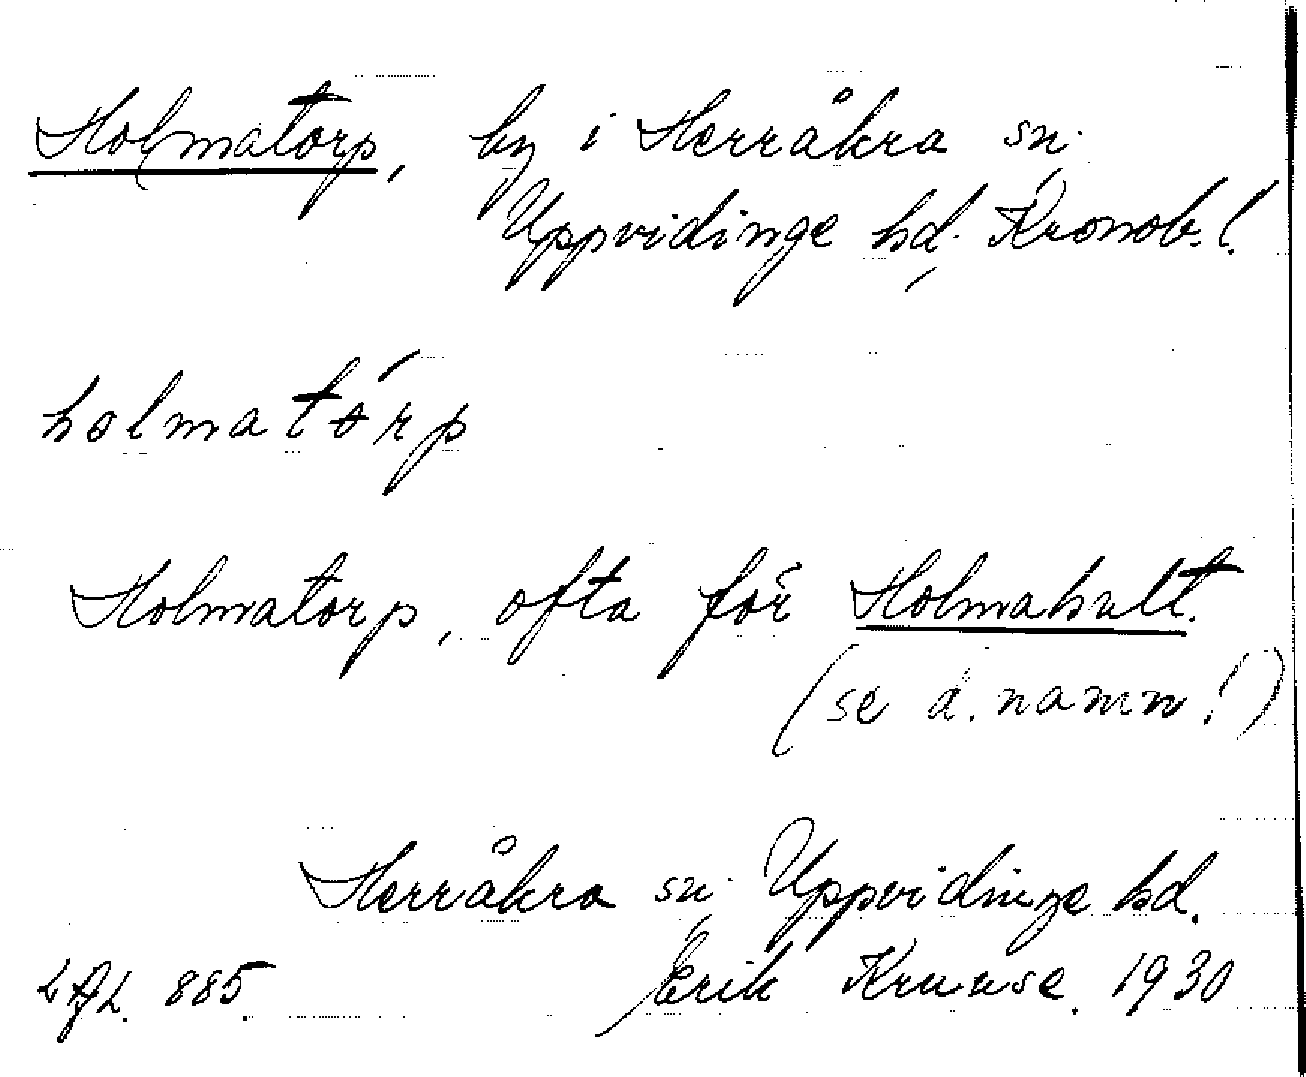 Holmatorp, by i Herråkra sn.
Uppvidinge hd. Kronob. l.
holmatórp
Holmatorp, ofta för Holmahult.
(se d. namn!)
Herråkra sn. Uppvidinge hd.
LAL. 885. Erik Kruuse. 1930